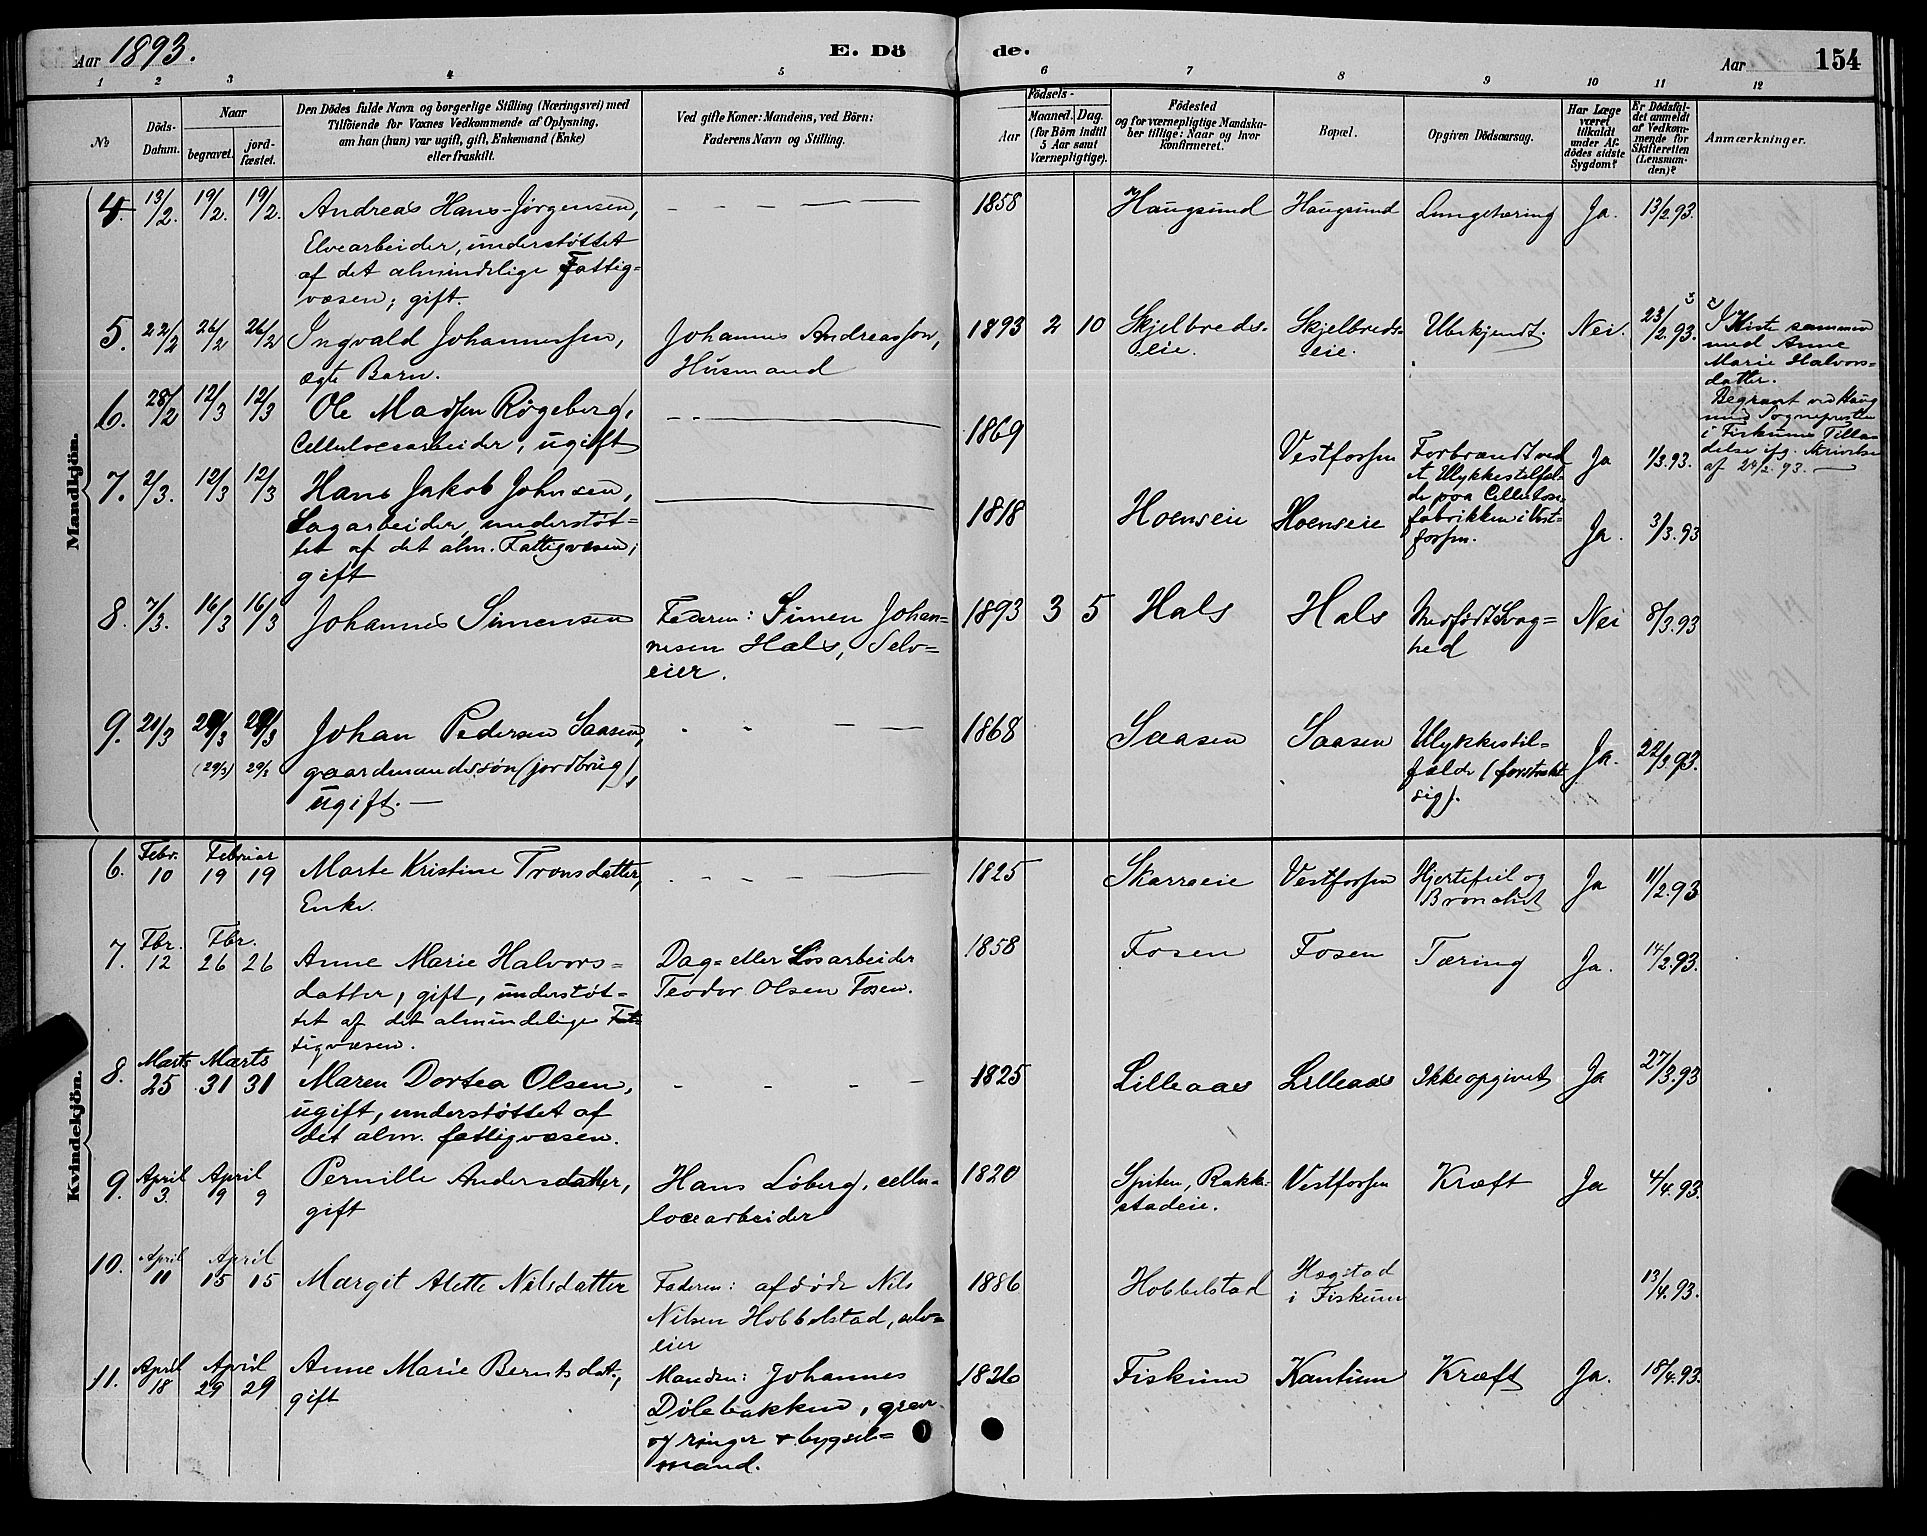 Aar 1893. E. Dö de. Aar 154
1 2 3 4 5 6 7 8 9 10 11 12
No Döds-Datum. Naar begravet. jord-fæstet.
Den Dödes fulde Navn og borgerlige Stilling (Næringsvei) med
Tilföiende for Voxnes Vedkommende af Oplysning,
om han (hun) var ugift, gift, Enkemand (Enke)
eller fraskilt.
Ved gifte Koner: Mandens, ved Börn:
Faderens Navn og Stilling.
Födsels-
Aar Maaned. Dag.
(for Börn indtil
5 Aar samt
Værnepligtige).
Födested
og for værnepligtige Mandska-
ber tillige: Naar og hvor
konfirmeret.
Bopæl.
Opgiven Dödsaarsag.
Har Læge
været
tilkaldt
under Af-
dödes sidste
Sygdom?
Er Dödsfal-
det anmeldt
af Vedkom-
mende for
Skifteretten
(Lensman-
den)?
Anmærkninger.
Mandkjön.
4. 13/2. 19/2. 19/2. Andreas Hans-Jørgensen, 1858 Haugsund Haugsund Lungetæring Ja. 13/2.93.
Elvearbeider, understøttet
af det almindelige Fattig=
væsen; gift.
5. 22/2 26/2 26/2 Ingvald Johannessen, Johannes Andreassøn, 1893 2 10 Skjelbreds- Skjelbreds- Ubekjendt. Nei. 23/2.93.
ægte Barn. Husmand eie. eie.
I Kiste sammen
med Anne
Marie Halvors=
datter.
6. 28/2 12/3 12/3 Ole Madsen Røgeberg, 1869 Vestfossen Forbrændt ved Ja 1/3.93.
Celluloesarbeider, ugift
et Ulykkestilfæl-
de paa Cellulose-
fabrikken i Vest-
fossen.
Begravet ved Haug
med Sognepresten
i Fiskums Tilla-
delse ifg. Skrivelse
af 24/2.93.
7. 2/3. 12/3 12/3 Hans Jakob Johnsen, 1818 Hoenseie Hoenseie Ja. 3/3.93
Sagarbeider, understøt=
tet af det alm. Fattigvæsen;
gift
8. 7/3. 16/3 16/3 Johannes Simensen Faderen: Simen Johan= 1893 3 5 Hals Hals Medfødt Svag= Nei 8/3.93
nesen Hals, Selv= hed
eier.
9. 21/3 29/3 29/3 Johan Pedersen Saasen, 1868 Saasen Saasen Ulykkestil= Ja. 22/3.93.
(29/3) 29/3 gaardmandssøn (jordbrug), fælde (forstrakt
ugift. sig).
Kvindekjön.
6. Febr. 10 Februar 19 19 Marte Kristine Tronsdatter, 1825 Skarraeie Vestfossen Hjertefeil og Ja 11/2.93
Enke. Bronchit
7. Fbr. 12 Fbr. 26 26 Anne Marie Halvors= Dag= eller Løsarbeider 1858 Fosen Fosen Tæring Ja. 14/2.93.
datter, gift, understøt= Teodor Olsen Fosen.
tet af det almindelige Fat-
tigvæsen.
8. Marts 25 Marts 31 31 Maren Dortea Olsen, 1825 Lilleaas Lilleaas Ikke opgivet Ja 27/3.93
ugift, understøttet af
det alm. fattigvæsen.
9. April 3 April 9 9 Pernille Andersdatter, Hans Loberg, cellu= 1820 Spiten, Rakke- Vestfossen Kræft Ja 4/4.93.
gift losearbeider stadeie.
10. April 11 April 15 15 Margit Alette Nilsdatter Faderen: afdøde Nils 1886 Hobbelstad Hægstad 13/4.93.
Nilsen Hobbelstad, selv= i Fiskum
eier
11. April 18 April 29 29 Anne Marie Berntsdat., Manden: Johannes 1826 Fiskum Kantum Kræft Ja. 18/4.93.
gift Dølebakken, grav-
og ringer & bygsel=
mand.